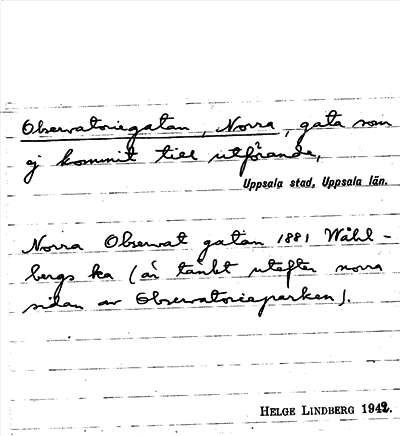 Observatoriegatan, Norra, gata som
ej kommit till utförande,
Uppsala stad, Uppsala län.
Norra Observat gatan 1881 Wåhl-
bergs ka (är tänkt utefter norra
sidan av Observatorieparken).
HELGE LINDBERG 1942.